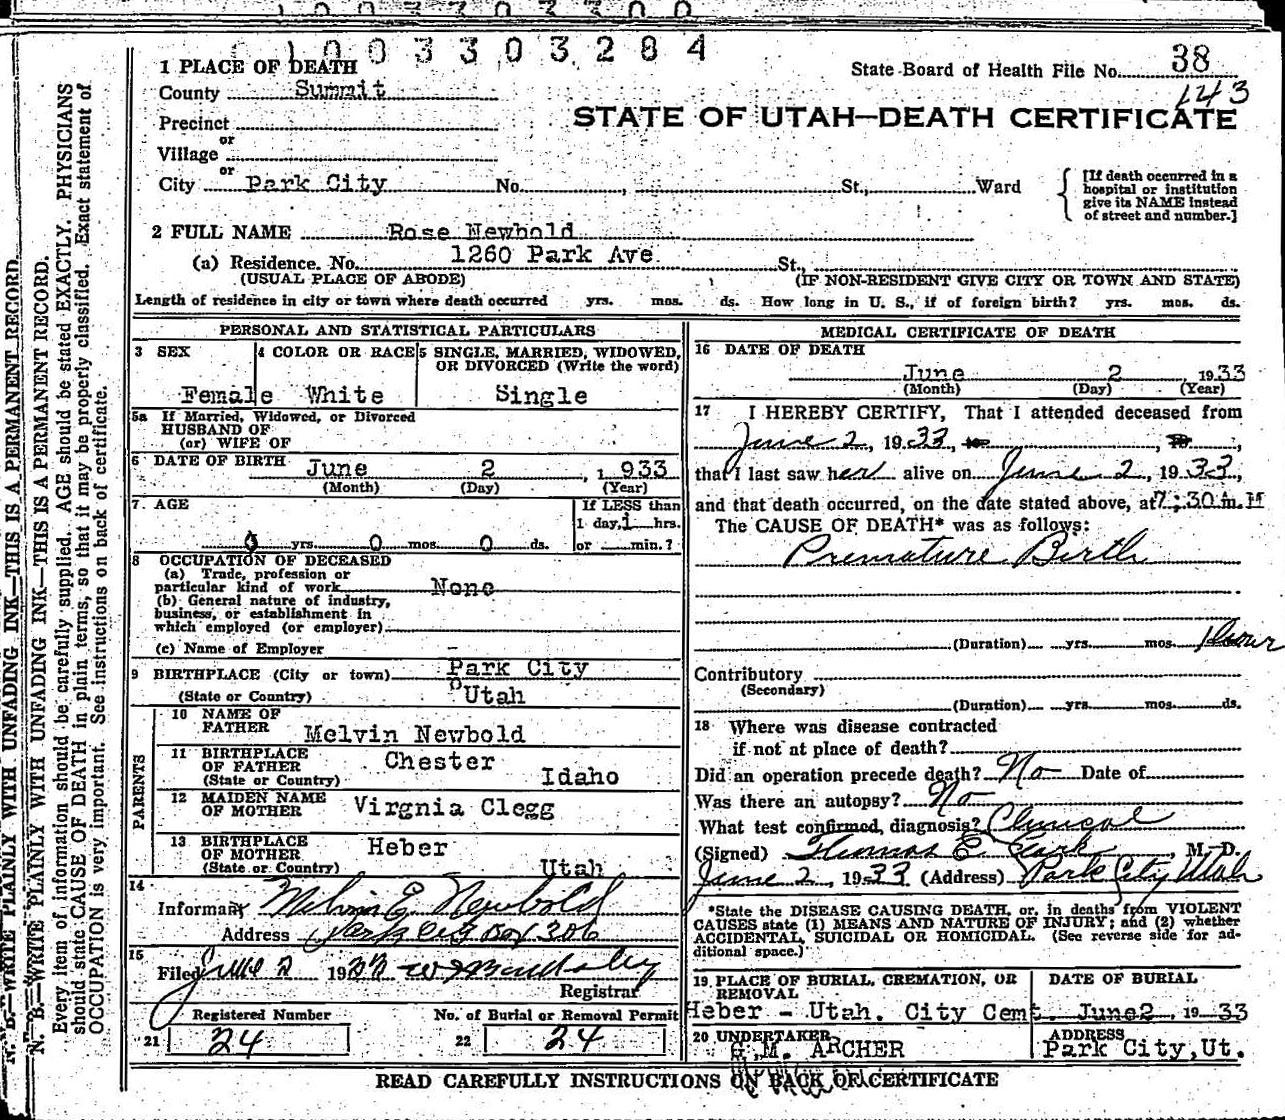 0100330 3284
1 PLACE OF DEATH
State Board of Health File No. 38
143
County Summit
STATE OF UTAH—DEATH CERTIFICATE
Precinct
or
Village
or
City Park City No. , St., Ward
[If death occurred in a
hospital or institution
give its NAME instead
of street and number.]
2 FULL NAME Rose Newbold
(a) Residence. No. 1260 Park Ave. St.,
(USUAL PLACE OF ABODE) (IF NON-RESIDENT GIVE CITY OR TOWN AND STATE)
Length of residence in city or town where death occurred yrs. mos. ds. How long in U. S., if of foreign birth? yrs. mos. ds.
PERSONAL AND STATISTICAL PARTICULARS
3 SEX 4 COLOR OR RACE 5 SINGLE, MARRIED, WIDOWED,
OR DIVORCED (Write the word)
Female White Single
5a If Married, Widowed, or Divorced
HUSBAND OF
(or) WIFE OF
6 DATE OF BIRTH June 2 , 1 933
(Month) (Day) (Year)
7. AGE If LESS than
1 day, 1 hrs.
0 yrs. 0 mos. 0 ds. or min.?
8 OCCUPATION OF DECEASED
(a) Trade, profession or
particular kind of work None
(b) General nature of industry,
business, or establishment in
which employed (or employer)
(c) Name of Employer -
9 BIRTHPLACE (City or town) Park City
(State or Country) Utah
PARENTS
10 NAME OF
FATHER Melvin Newbold
11 BIRTHPLACE
OF FATHER Chester
(State or Country) Idaho
12 MAIDEN NAME
OF MOTHER Virgnia Clegg
13 BIRTHPLACE
OF MOTHER Heber
(State or Country) Utah
14
Informant Melvin E. Newbold
Address Park City Box 306
15
Filed June 2 1933
Registrar
Registered Number No. of Burial or Removal Permit
21 24 22 24
MEDICAL CERTIFICATE OF DEATH
16 DATE OF DEATH
June 2 , 1933
(Month) (Day) (Year)
17 I HEREBY CERTIFY, That I attended deceased from
June 2, 1933, to
that I last saw her alive on June 2, 1933,
and that death occurred, on the date stated above, at 7:30 m.
The CAUSE OF DEATH* was as follows:
Premature Birth
(Duration) yrs. mos. 1 hour
Contributory
(Secondary)
(Duration) yrs. mos. ds.
18 Where was disease contracted
if not at place of death?
Did an operation precede death? No Date of
Was there an autopsy? No
What test confirmed diagnosis? Clinical
(Signed) Thomas E. Clark, M. D.
June 2, 1933 (Address) Park City Utah
*State the DISEASE CAUSING DEATH, or, in deaths from VIOLENT
CAUSES state (1) MEANS AND NATURE OF INJURY; and (2) whether
ACCIDENTAL, SUICIDAL OR HOMICIDAL. (See reverse side for ad-
ditional space.)
19 PLACE OF BURIAL, CREMATION, OR
REMOVAL
DATE OF BURIAL
Heber - Utah. City Cemt. June 2 , 19 33
20 UNDERTAKER ADDRESS
G. M. ARCHER Park City, Ut.
READ CAREFULLY INSTRUCTIONS ON BACK OF CERTIFICATE
N. B.—WRITE PLAINLY WITH UNFADING INK—THIS IS A PERMANENT RECORD.
N. B.—WRITE PLAINLY WITH UNFADING INK—THIS IS A PERMANENT RECORD.
Every item of information should be carefully supplied. AGE should be stated EXACTLY. PHYSICIANS
should state CAUSE OF DEATH in plain terms, so that it may be properly classified. Exact statement of
OCCUPATION is very important. See instructions on back of certificate.